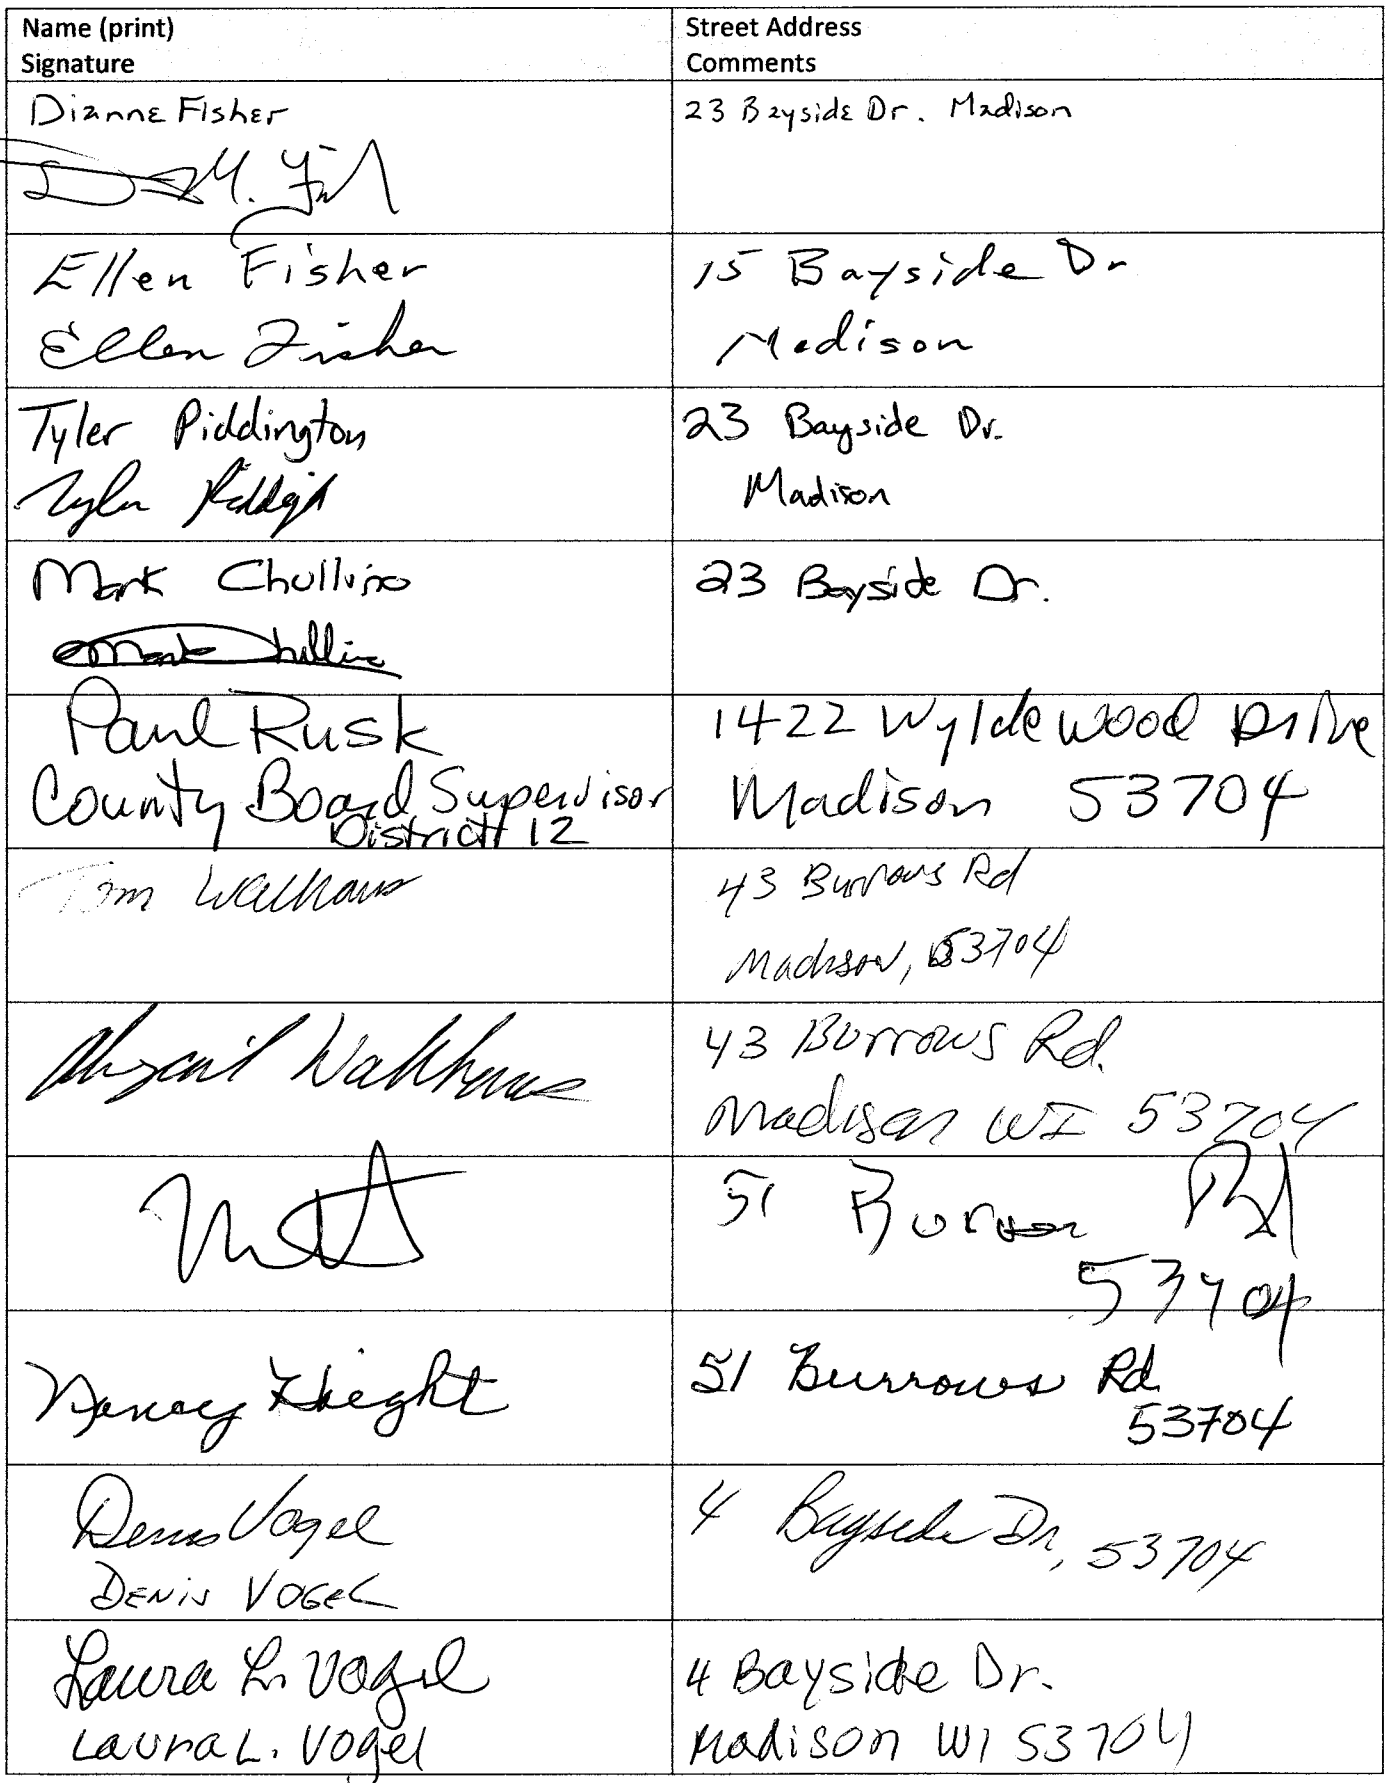 Name (print)
Signature
Street Address
Comments
Dianne Fisher
23 Bayside Dr. Madison
Ellen Fisher
Ellen Fisher
15 Bayside Dr
Madison
Tyler Piddington
Tyler
23 Bayside Dr.
Madison
Mark Chullino
Mark Chullino
23 Bayside Dr.
Paul Rusk
County Board Supervisor
District 12
1422 Wyldewood Drive
Madison 53704
Tom Walhaus
43 Burrows Rd
Madison, 53704
Abigail Wallhaus
43 Burrows Rd.
Madison WI 53704
51 Rd
53704
Nancy Height
51 Burrows Rd.
53704
Denis Vogel
DENIS VOGEL
4 Bayside Dr, 53704
Laura L. Vogel
Laura L. Vogel
4 Bayside Dr.
Madison WI 53704